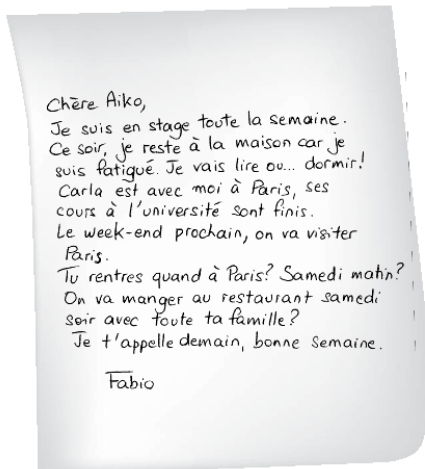 Chère Aiko,
Je suis en stage toute la semaine.
Ce soir, je reste à la maison car je
suis fatigué. Je vais lire ou... dormir!
Carla est avec moi à Paris, ses
cours à l'université sont finis.
Le week-end prochain, on va visiter
Paris.
Tu rentres quand à Paris? Samedi matin?
On va manger au restaurant samedi
soir avec toute ta famille?
Je t'appelle demain, bonne semaine.
Fabio